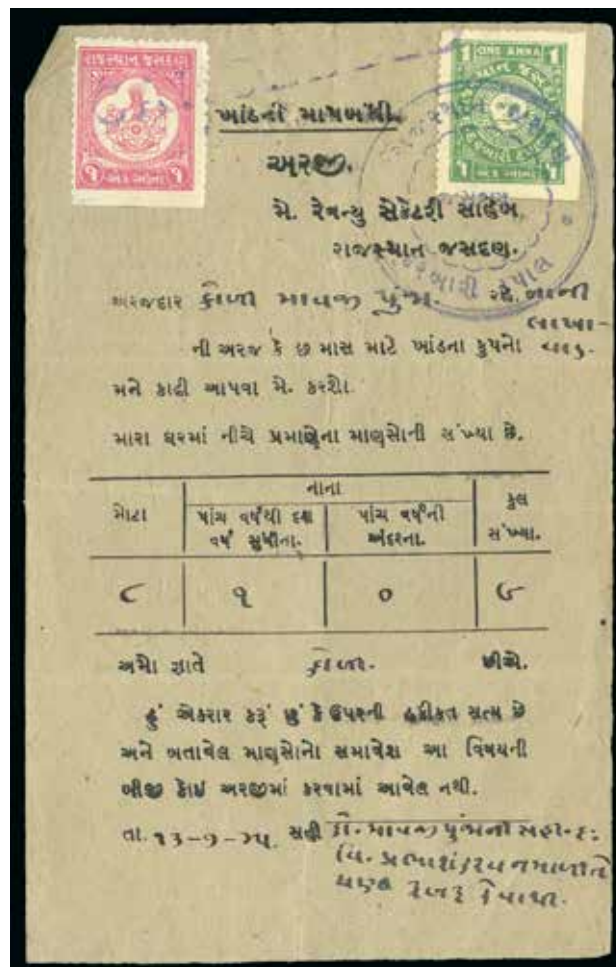 રાજસ્થાન જસદણ
૧ ૧
એક આના
ONE ANNA
1 1
1 1
એક આના
ખાંડની માપબંધી.
અરજી.
મે. રેવન્યુ સેક્રેટરી સાહેબ
રાજસ્થાન જસદણ.
અરજદાર કોળી માવજી પુંજા રહે. નાની
લાખા-
ની અરજ કે છ માસ માટે ખાંડના કુપનો વાડ.
મને કાઢી આપવા મે. કરશો.
મારા ઘરમાં નીચે પ્રમાણેના માણસોની સંખ્યા છે.
નાના
મોટા પાંચ વર્ષથી દશ પાંચ વર્ષની કુલ
વર્ષ સુધીના. અંદરના. સંખ્યા.
૮ ૧ ૦ ૯
અમો જ્ઞાતે કોળી. છીએ.
હું એકરાર કરૂં છું કે ઉપરની હકીકત સત્ય છે
અને બતાવેલ માણસોનો સમાવેશ આ વિષયની
બીજી કોઈ અરજીમાં કરવામાં આવેલ નથી.
તા. સહી કો. માવજી પુંજાની સહી દ: